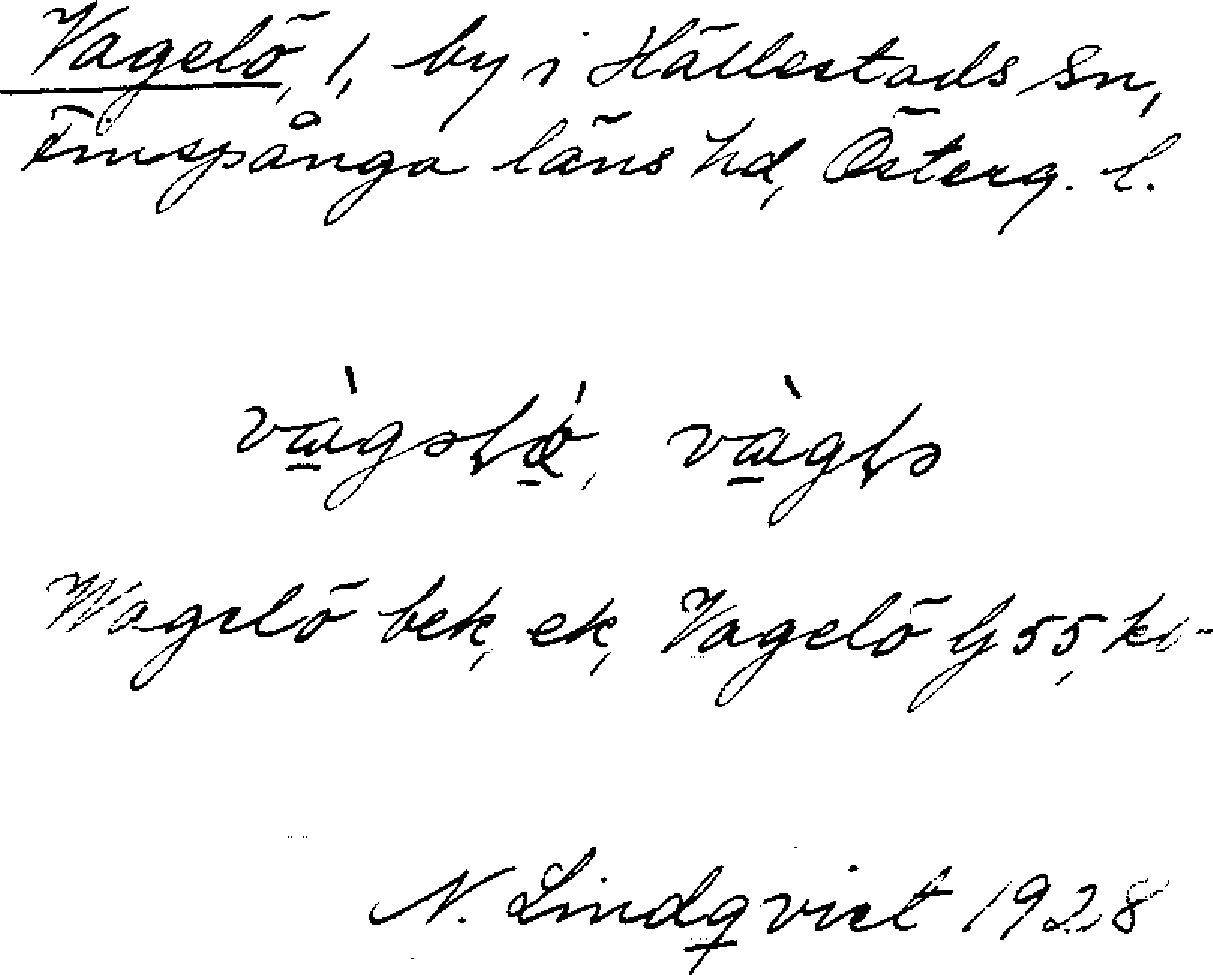 Vagelö, 1, by i Hällestads sn,
Finspånga läns hd, Österg. l.
Wagelö bek, ek, Vagelö G 55,
N. Lindqvist 1928